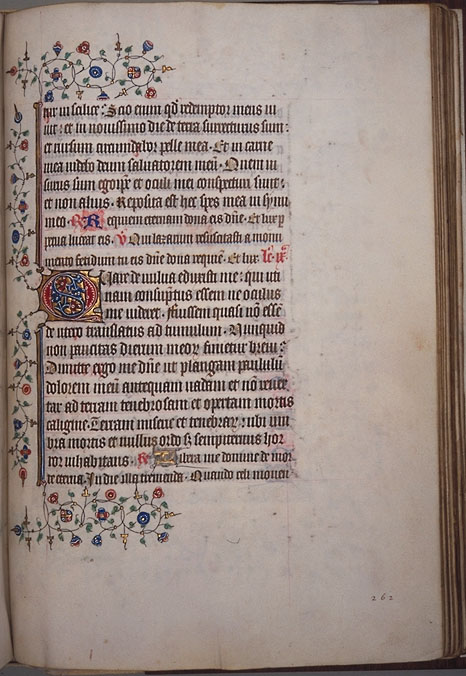 tur in silice? Scio enim qd redemptor meus ui
uit: et in nouissimo die de terra surrecturus sum:
et rursum circumdabor pelle mea. Et in carne
mea uidebo deum saluatorem meũ. Quem ui
surus sum ego ip̃e et oculi mei conspecturi sunt:
et non alius. Reposita est hec spes mea in sinu
meo. R Requiem eternam dona eis dñe. Et lux p
petua luceat eis. V Qui lazarum resuscitasti a monu
mento fetidum tu eis dñe dona requiẽ. Et lux. lc̃ ix.
Quare de uulua eduxisti me: qui uti
nam consũptus essem ne oculus
me uideret. Fuissem quasi nõ esse
de utero translatus ad tumulum. Nunquid
non paucitas dierum meorꝝ finietur breui?
Dimitte ergo me dñe ut plangam paululũ
dolorem meũ antequam uadam et nõ reuer
tar ad terram tenebrosam et opertam mortis
caligine. Terram miserie et tenebrarꝝ: ubi um
bra mortis et nullus ordo sꝫ sempiternus hor
ror inhabitans. R Libera me domine de mor
te eterna. In die illa tremenda. Quando celi mouen
262